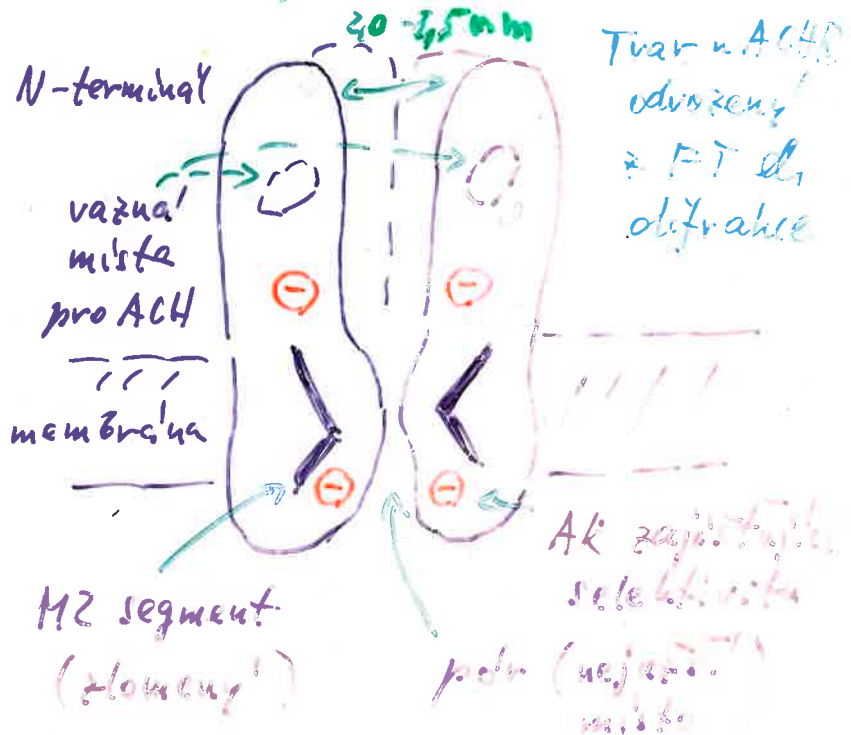 2,0 -2,5 nm
N-terminál
Tvar nACHR
odvozený
z FT el.
difrakce
vazná
místa
pro ACH
membrána
M2 segment
(zlomený)
AK zajišťující
selektivitu
pór (nejužší
místo